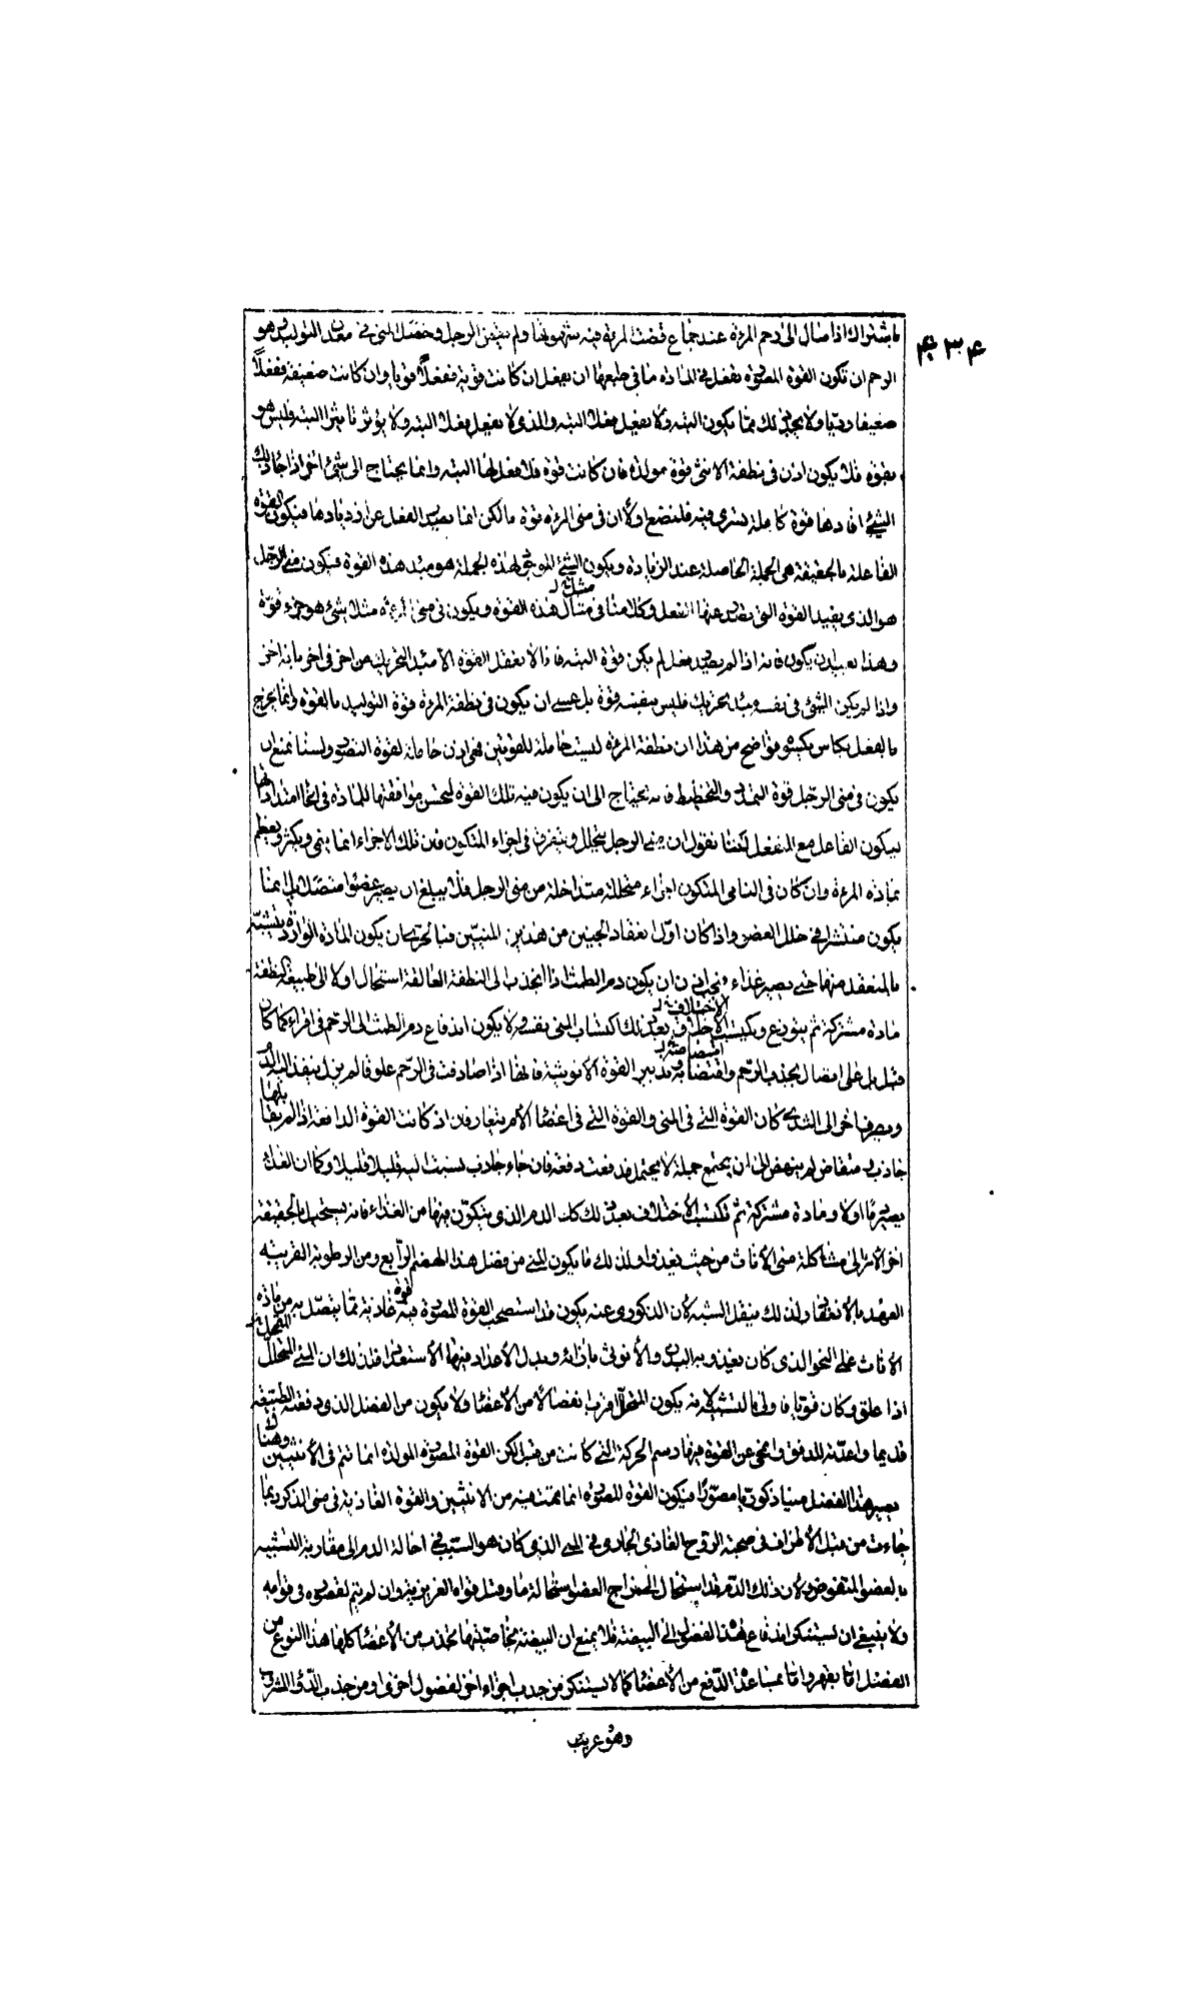 ۴۳۴
باشتراك اذا سال الى رحم المرءة عند جماع قضت المرءة فيه شهوتها ولم يقض الرجل وحصلت المنى فى معدن التوليد وهو
الرحم ان تكون القوة المصورة تفعل فى المادة ما فى طبعها ان تفعل ان كانت قوية ففعلاً قويا وان كانت ضعيفة ففعلاً
ضعيفا رديا ولا يجب ذلك مما يكون البته ولا يفعل فعلا البته والذى لا يفعل فعلا البته ولا يؤثر تاثيرا البته فليس هو
بقوة فلا يكون اذن فى نطفة الانثى قوة مولدة فان كانت قوة فلا فعل لها البته وانما يحتاج الى شئ اخر اذا جاء ذلك
الشئ افادها قوة كاملة تسرى فيه فلنضع اولا ان فى منى المرءة قوة ما لكن انما يصدر الفعل عن ازديادها فيكون القوة
الفاعلة بالحقيقة هى الجملة الحاصلة عند الزيادة ويكون الشئ الموجب لهذه الجملة هو مبدء هذه القوة فيكون منى الرجل
هو الذى يفيد القوة التى يصدر عنها الفعل وكلامنا فى مثال هذه القوة ويكون فى منى المرءة مثلا شئ هو جزء قوة
وهذا بعيد ان يكون فانه اذا لم يصدر فعل لم يكن قوة البته فاذ لا تفعل القوة الا مبدء التحريك من اخر فى اخر بانه اخر
واذا لم يكن الشئ فى نفسه مبدء تحريك فليس بقينه قوة بل عسى ان يكون فى نطفة المرءة قوة التوليد بالقوة وانما يخرج
بالفعل بكاس يكسو فواضح من هذا ان نطفة المرءة ليست حاملة للقوتين فهى اذن حاملة لقوة التصور ولسنا نمنع ان
يكون فى منى الرجل قوة التمدد والتخطيط فانه يحتاج الى ان يكون فيه تلك القوة ليحسن موافقتها للمادة فى انحاء امتدادها
فيكون الفاعل مع المنفعل لكننا نقول ان منى الرجل يتحلل ويتفرق فى اجزاء المتكون فان تلك الاجزاء انما ينمى ويكثر ويعظم
بمادة المرءة وان كان فى النامى المتكون اجزاء متحللة متداخلة من منى الرجل فلا يبلغ ان يصير عضوا متصلا بل انما
يكون منتشرا فى خلل العضو واذا كان اول انعقاد الجنين من هذين المنيين فبالحرى ان يكون المادة الواردة يتشبه
بالمنعقد منها حتى يصير غذاء فيجب اذن ان يكون دم الطمث اذا انجذب الى النطفة العالقة استحال اولا الى طبيعة كنطفة
مادة مشتركة ثم يتوزع ويكتسب الاختلاف بعد ذلك اكتساب المنى نفسه ولا يكون اندفاع دم الطمث الى الرحم فى اقراء كما كان
قبل بل على اتصال بجذب الرحم واقتضائه بتدبير القوة الانوثية فانها اذا صادفت فى الرحم علوقا لم يزل ينفذ اليه الدم
ويصرفها اخر الى الثدى كان القوة التى فى المنى والقوة التى فى اعضاء الام يتعارفان اذ كانت القوة الدافعة اذا لم يقابلها
جاذب متقاض لم ينهض الى ان يجتمع جملة لا يحتمل فدفعت دفعة فان جاء جاذب نسبت اليه قليلا قليلا وكما ان الفلك
يصير ما اولا ومادة مشتركة ثم تكتسب الاختلاف بعد ذلك كان الدم الذى يتكون فيها من الغذاء فانه يستحيل بالحقيقة
اخر الامر الى مشاكلة منى الاناث من حيث يغذوا ولذلك ما يكون المنى من فضل هذا الهضم الرابع ومن الرطوبة القريبة
العهد بالانعقاد ولذلك ينقل الشبه كان الذكورى عنه يكون قد استصحب القوة المصورة فيه قوة غاذية مما يتصل به من مادة
الاناث على النحو الذى كان يغذو به البدن والانوثى بازائه وبدل الاعداد فيها الاستعداد فذلك ان المنى المتحلل
اذا علق وكان قويا فاولى بالتشبيه لانه يكون المتحلل اقرب انفصالا من الاعضاء ولا يكون من الفضل الذى دفعته الطبيعة
قديما واعدته للدفق وانمحى عن القوة فيها رسم الحركة التى كانت من قبل لكن القوة المصورة المولدة انما تتم فى الانثيين وهناك
يصير هذا الفضل منيا ذكوريا مصورا فيكون القوة المصورة انما تمت فيه من الانثيين والقوة الغاذية فى منى الذكر ربما
جاءت من قبل الاطراف فى صحبة الروح الغاذى الجارى فى المنى الذى كان هو السبب فى احالة الدم الى مقاربة التشبيه
بالعضو المنفوض ولان ذلك الدم قد استحال الى مزاج العضو استحالة ما وقبل قواه الغريزية وان لم يتم لقصوره فى قوامه
ولا ينبغى ان يستنكر اندفاع هذا الفضول الى البيضة فلا يمنع ان البيضة بخاصيتها تجذب من الاعضاء كلها هذا النوع من
الفضل اما بقهر واما بمساعدة الدفع من الاعضاء كما لا يستنكر من جذب اجزاء اخر لفضول اخرى ومن جذب الدواء المشروب
وهو غريب